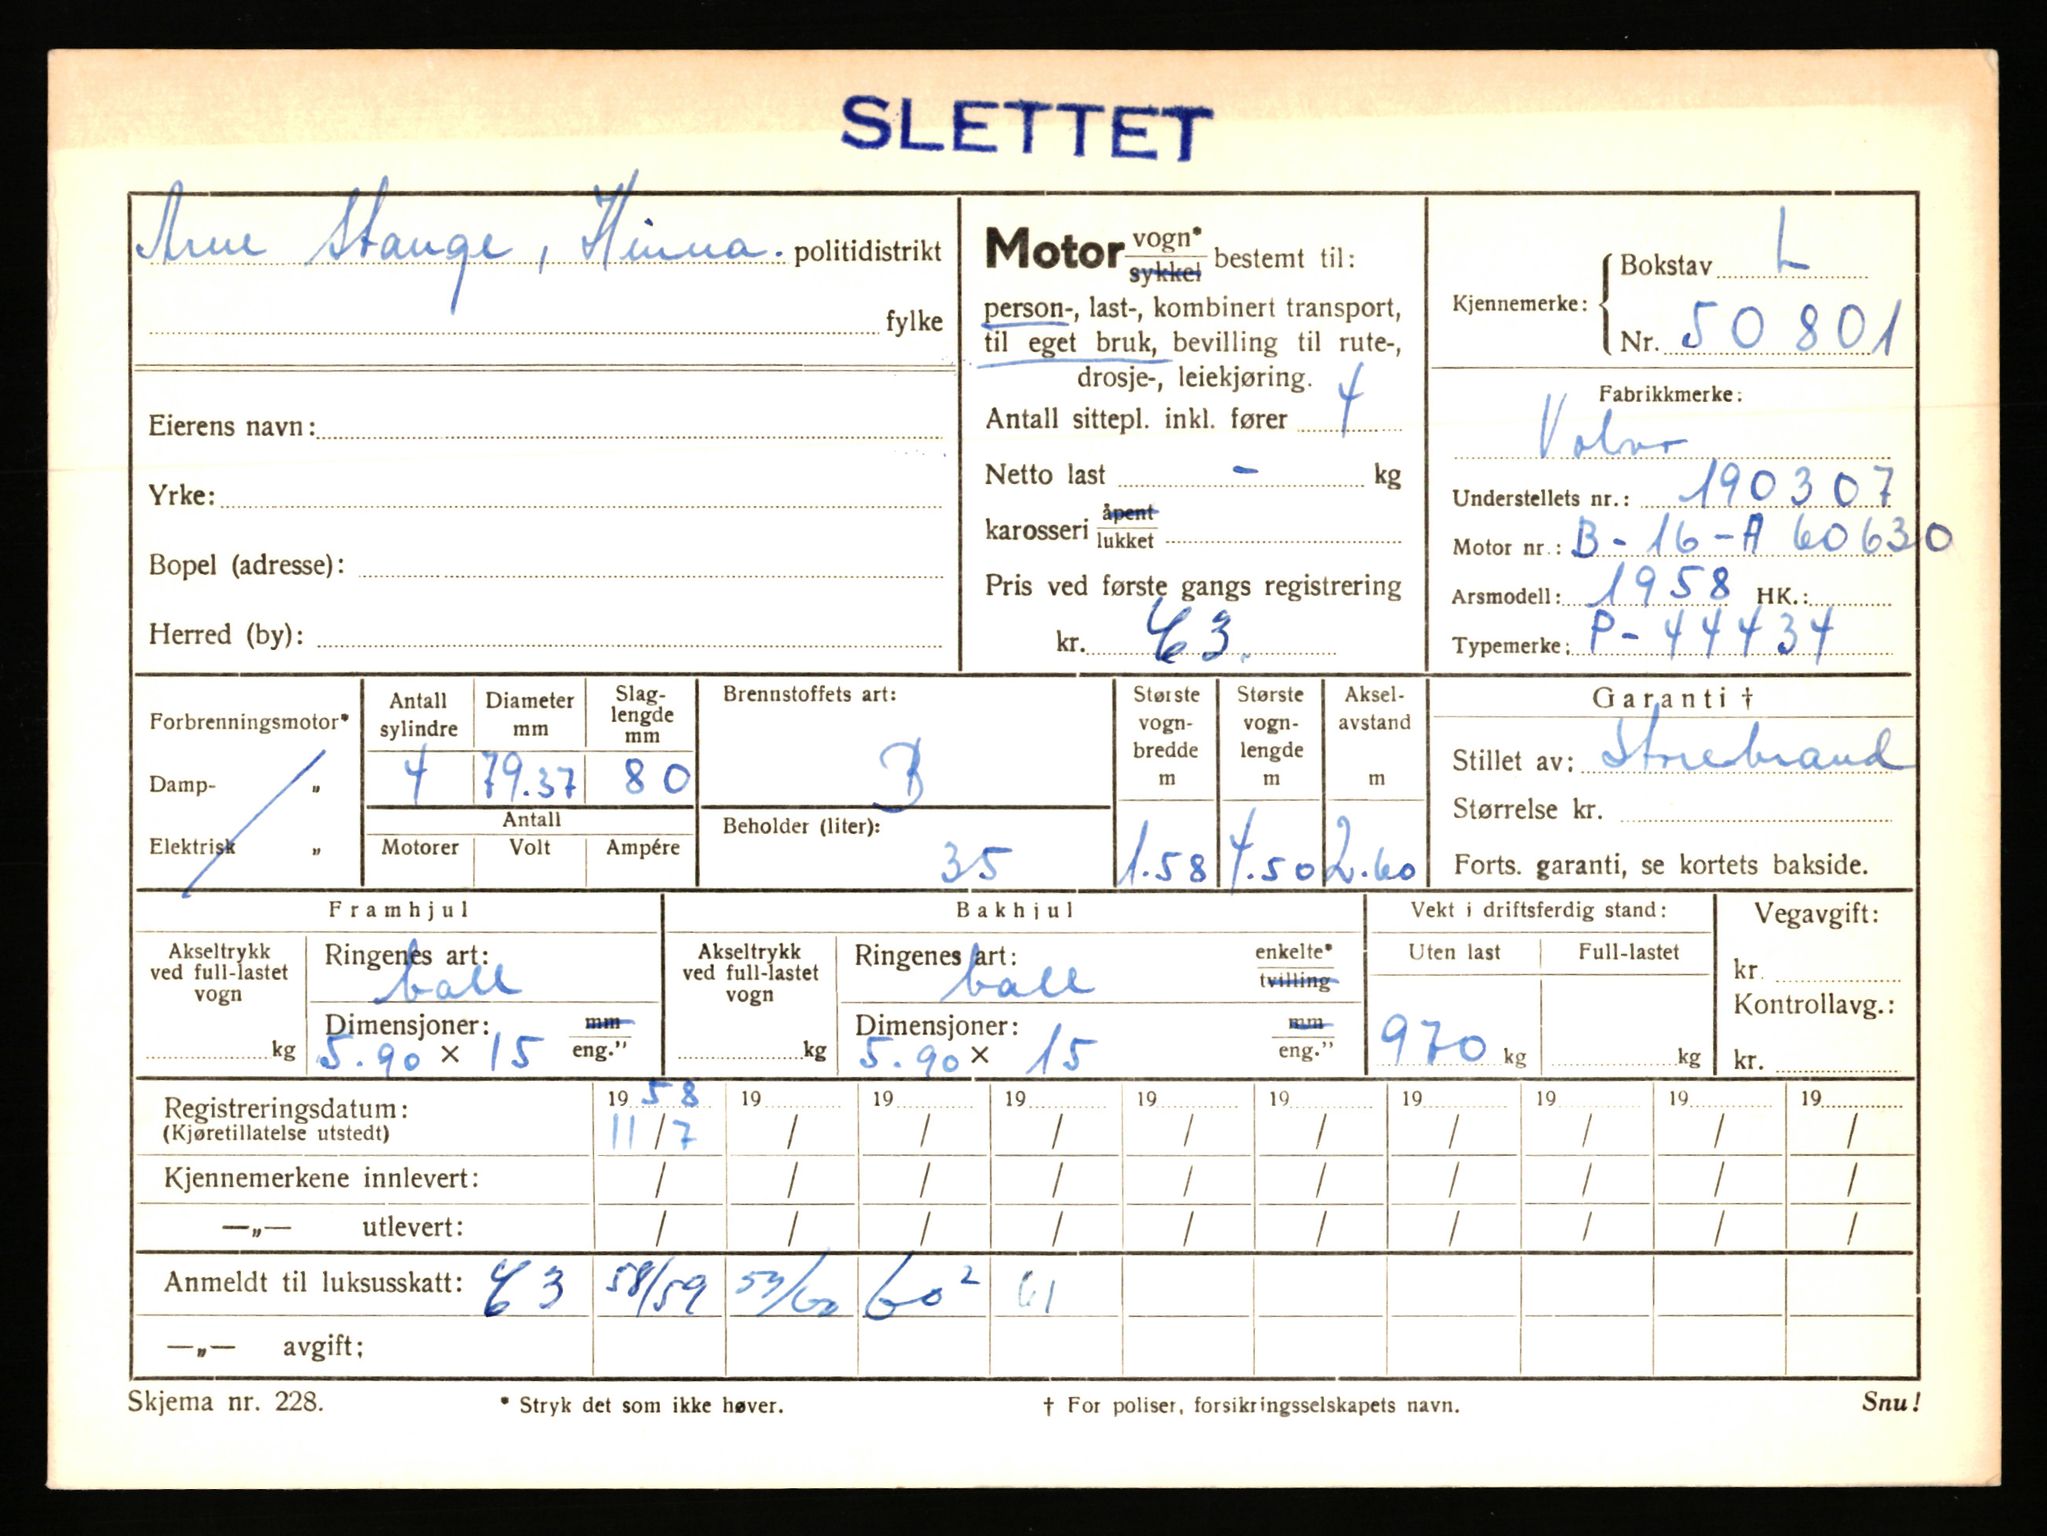 SLETTET
Arne Stange, Hinna. politidistrikt
fylke
Eierens navn:
Yrke:
Bopel (adresse):
Herred (by):
Motor vogn* sykkel bestemt til:
person-, last-, kombinert transport,
til eget bruk, bevilling til rute-,
drosje-, leiekjøring.
Antall sittepl. inkl. fører 4
Netto last - kg
karosseri åpent lukket
Pris ved første gangs registrering
kr. 43.
Kjennemerke: Bokstav L
Nr. 50801
Fabrikkmerke:
Volvo
Understellets nr.: 190307
Motor nr.: B-16-A 60630
Arsmodell: 1958 HK.:
Typemerke: P-44434
Forbrenningsmotor*
Damp- „
Elektrisk „
Antall sylindre 4
Diameter mm 79.37
Slag-lengde mm 80
Antall
Motorer Volt Ampére
Brennstoffets art:
B
Beholder (liter):
35
Største vogn-bredde m 1.58
Største vogn-lengde m 4.50
Aksel-avstand m 2.60
Garanti †
Stillet av: Storebrand
Størrelse kr.
Forts. garanti, se kortets bakside.
Framhjul
Akseltrykk ved full-lastet vogn
kg
Ringenes art:
ball
Dimensjoner: mm
5.90 × 15 eng."
Bakhjul
Akseltrykk ved full-lastet vogn
kg
Ringenes art: enkelte*
ball tvilling
Dimensjoner: mm
5.90 × 15 eng."
Vekt i driftsferdig stand:
Uten last Full-lastet
970 kg kg
Vegavgift:
kr.
Kontrollavg.:
kr.
Registreringsdatum: 19 58 19 19 19 19 19 19 19 19 19
(Kjøretillatelse utstedt) 11/7 / / / / / / / / /
Kjennemerkene innlevert: / / / / / / / / / /
—„— utlevert: / / / / / / / / / /
Anmeldt til luksusskatt: 43 58/59 59/60 60² 61
—„— avgift:
Skjema nr. 228. * Stryk det som ikke høver. † For poliser, forsikringsselskapets navn. Snu!